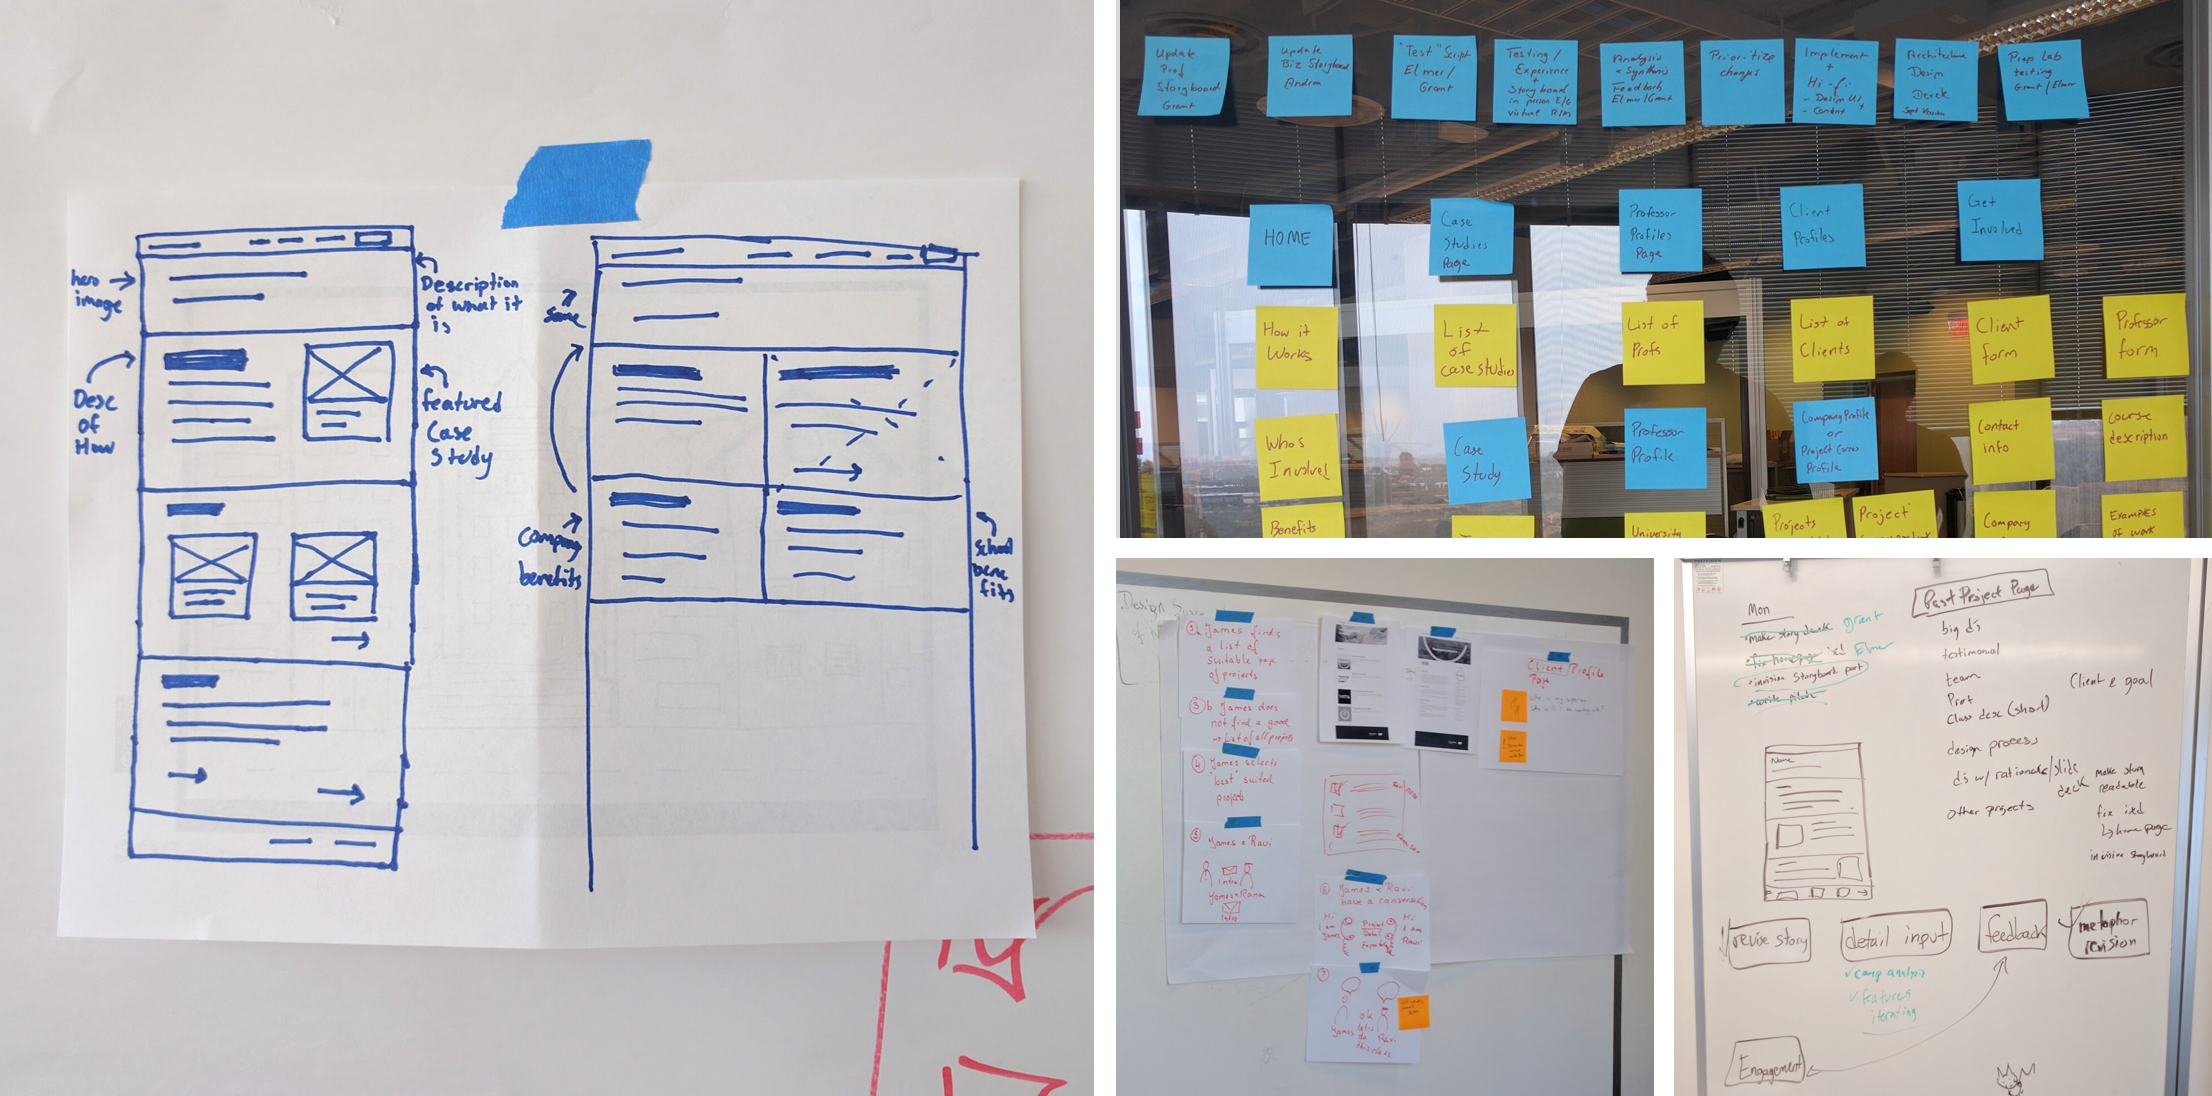 hero
image
Desc
of
How
Description
of what it
is
featured
Case
Study
Same
Company
benefits
School
bene
fits
Update
Prof
Storyboard
Grant
Update
Biz Storyboard
Andrea
"Test" Script
Elmer/
Grant
Testing/
Experience
+
Storyboard
in person E/G
virtual R/M
Analysis
& Synthesis
Feedback
Elmer/Grant
Prioritize
changes
Implement
+
Hi-fi
- Design UI
- Content
Architecture
Design
Derek
Sept Version
Prep Lab
testing
Grant/Elmer
HOME
Case
Studies
Page
Professor
Profiles
Page
Client
Profiles
Get
Involved
How it
Works
List
of
case studies
List of
Profs
List of
Clients
Client
form
Professor
form
Who's
Involved
Case
Study
Professor
Profile
Company Profile
or
Project Profile
Contact
info
Course
description
Benefits
University
Projects
Project
Company
Examples
of work
Design
James finds
a list of
suitable
of projects
3 b James does
not find a good
→ List of all projects
4 James selects
"best" suited
projects
5 James & Ravi
Intro
Intro
Client Profile
Page
6 James & Ravi
have a conversation
Hi
I am
James
Project
Hi
I am
Ravi
7
James
ok
let's
do
this
Ravi
Mon
make story deck grant
fix homepage ixd Elmer
invision Storyboard port
Past Project Page
big d's
testimonal
team
Prof
Class desc (short)
design process
d's w/ rationale/slide
deck
other projects
Client & goal
make story
readable
fix ixd
↳ home page
invision storyboard
Name
revise story
detail input
feedback
metaphor
revision
✓ comp analysis
✓ features
iterating
Engagement